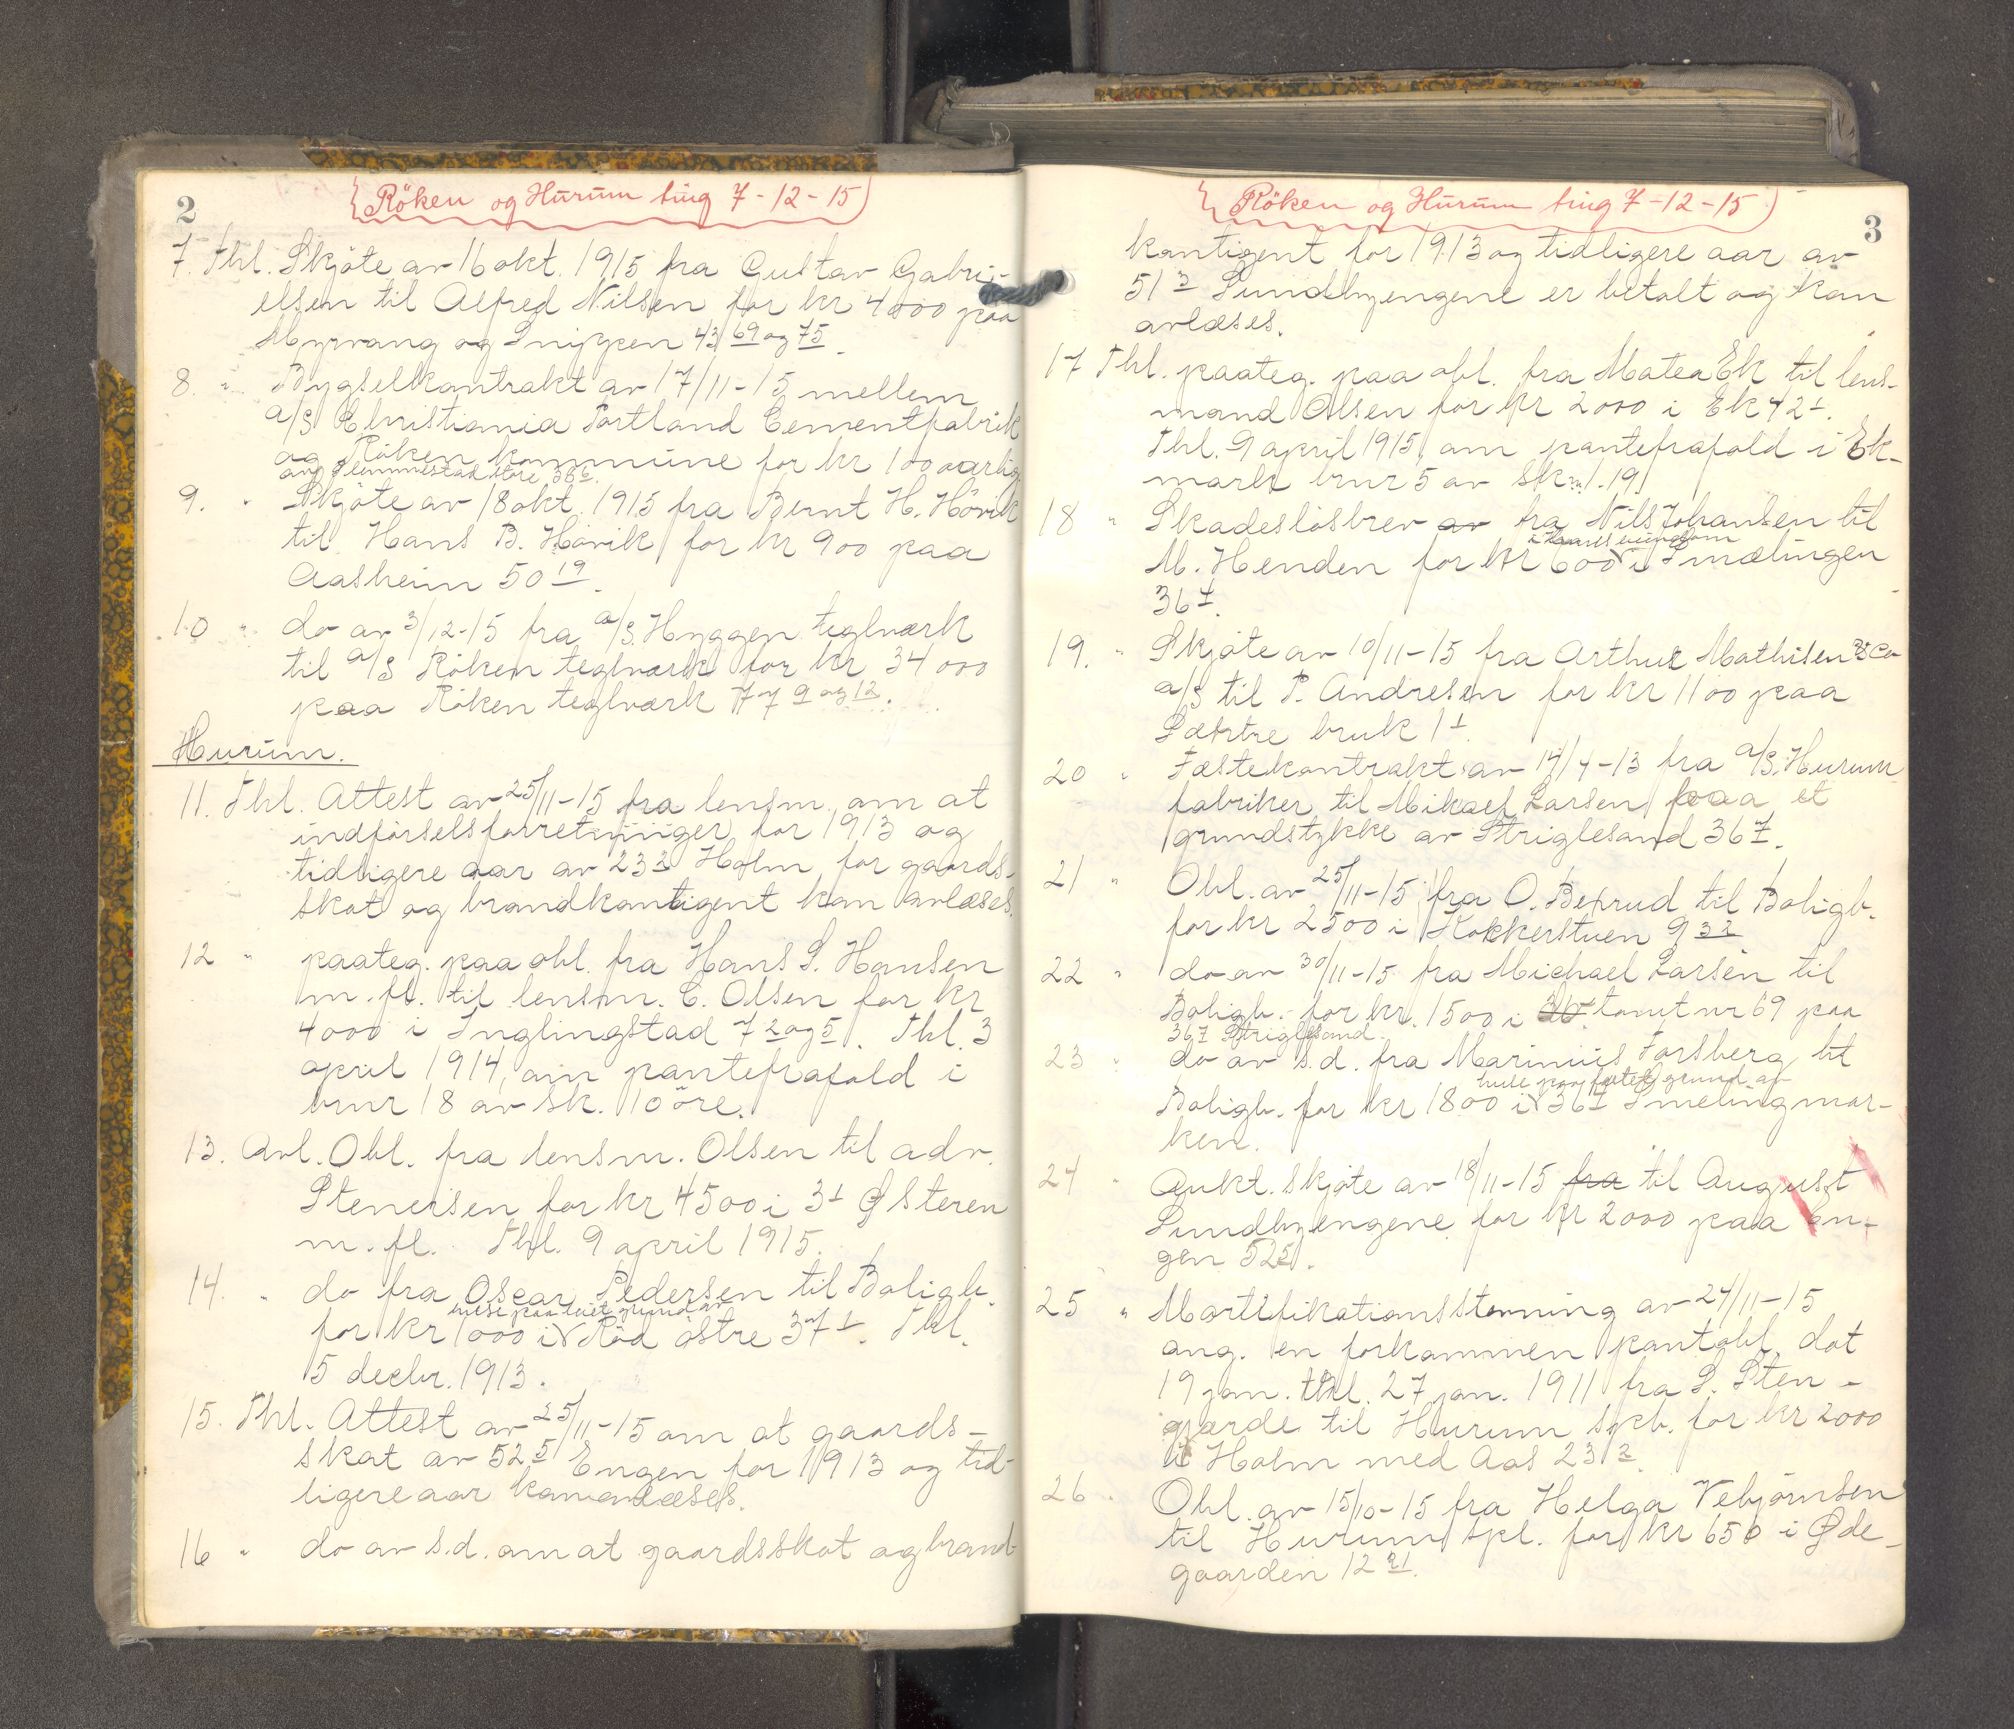 2
Röken og Hurum ting 7-12-15
7. Thl. Skjöte av 16 okt. 1915 fra Gustav Gabri-
elsen til Alfred Nilsen for kr 4000 paa
Myrvang og Snippen 43 69 og 75.
8. " Bygselkontrakt av 17/11-15 mellem
a/S Christiania Portland Cementfabrik
og Röken kommune for kr 100 aarlig
ang Slemmestad store 36 6.
9. " Skjöte av 18 okt. 1915 fra Bernt H. Hövik
til Hans B. Hövik for kr 900 paa
Aasheim 50 19.
10 " do av 3/12-15 fra a/S. Hyggen teglværk
til a/S Röken teglværk for kr 34000
paa Röken teglværk 77 9 og 12.
Hurum.
11. Thl. Attest av 25/11-15 fra lensm. om at
indförselsforretninger for 1913 og
tidligere aar av 23 2 Holm for gaards-
skat og brandkontigent kan avlæses.
12 " paateg. paa obl. fra Hans S. Hansen
m. fl. til lensm. C. Olsen for kr
4000 i Inglingstad 7 2 og 5. Thl. 3
april 1914, om pantefrafald i
brnr 18 av sk. 10 öre.
13. Avl. Obl. fra lensm. Olsen til adv.
Stenersen for kr 4500 i 3 1 Østeren
m. fl. Thl. 9 april 1915.
14. " do fra Oscar Pedersen til Boligb.
huse paa leiet grund av
for kr 1000 i V Röd östre 37 1. Thl.
5 decbr. 1913.
15. Thl. Attest av 25/11-15 om at gaards-
skat av 52 5 Engen for 1913 og tid-
ligere aar kan avlæses.
16 " do av s.d. om at gaardsskat og brand-
3
Röken og Hurum ting 7-12-15
kontigent for 1913 og tidligere aar av
51 3 Sundbyengene er betalt og kan
avlæses.
17 Thl. paateg. paa obl. fra Matea Ek til lens-
mand Olsen for kr 2000 i Ek 42 1.
Thl. 9 april 1915, om pantefrafald i Ek-
mark brnr 5 av Skm. 1.19.
18 " Skadeslösbrev av fra Nils Johansen til
M. Henden for kr 600 V i Smælingen
36 7.
19. " Skjöte av 10/11-15 fra Arthur Mathisen & Co
a/S til P. Andresen for kr 1100 paa
Sætre bruk 1 1.
20 " Fæstekontrakt av 14/4-13 fra a/S. Hurum
fabriker til Mikael Larsen paa et
grundstykke av Striglesand 36 7.
21 " Obl. av 25/11-15 fra O. Beprud til Boligb.
for kr 2500 i Kokkerstuen 9 32
22 " do av 30/11-15 fra Michael Larsen til
Boligb. for kr. 1500 i 36 tomt nr 69 paa
36 7 Striglesand.
23 " do av s.d. fra Marinius Forsberg til
huse paa fæstet grund av
Boligb. for kr 1800 i V 36 7 Smelingmar-
ken.
24 " Aukt. skjöte av 18/11-15 fra til August
Sundbyengene for kr 2000 paa En-
gen 52 5.
25 " Mortifikationsstevning av 24/11-15
ang. en forkommen pantobl. dat
19 jan. thl. 27 jan. 1911 fra S. Sten-
gjærde til Hurum spb. for kr 2000
i Holm med Aas 23 2.
26 " Obl. av 15/10-15 fra Helga Vebjörnsen
til Hurum spl. for kr 650 i Øde-
gaarden 12 21.